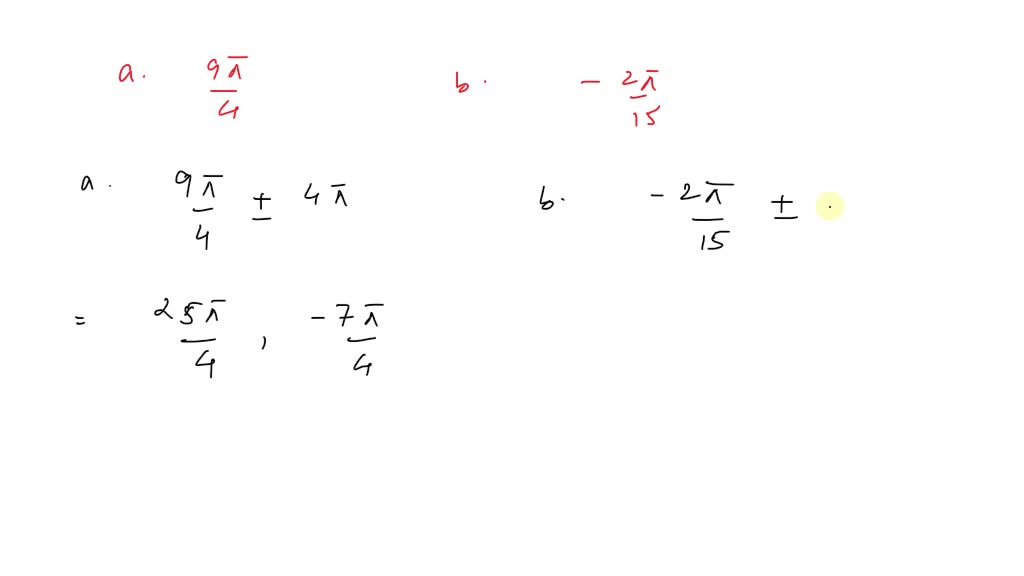 a. 9π/4 b. - 2π/15
a. 9π/4 ± 4π b. - 2π/15 ±
= 25π/4 , - 7π/4